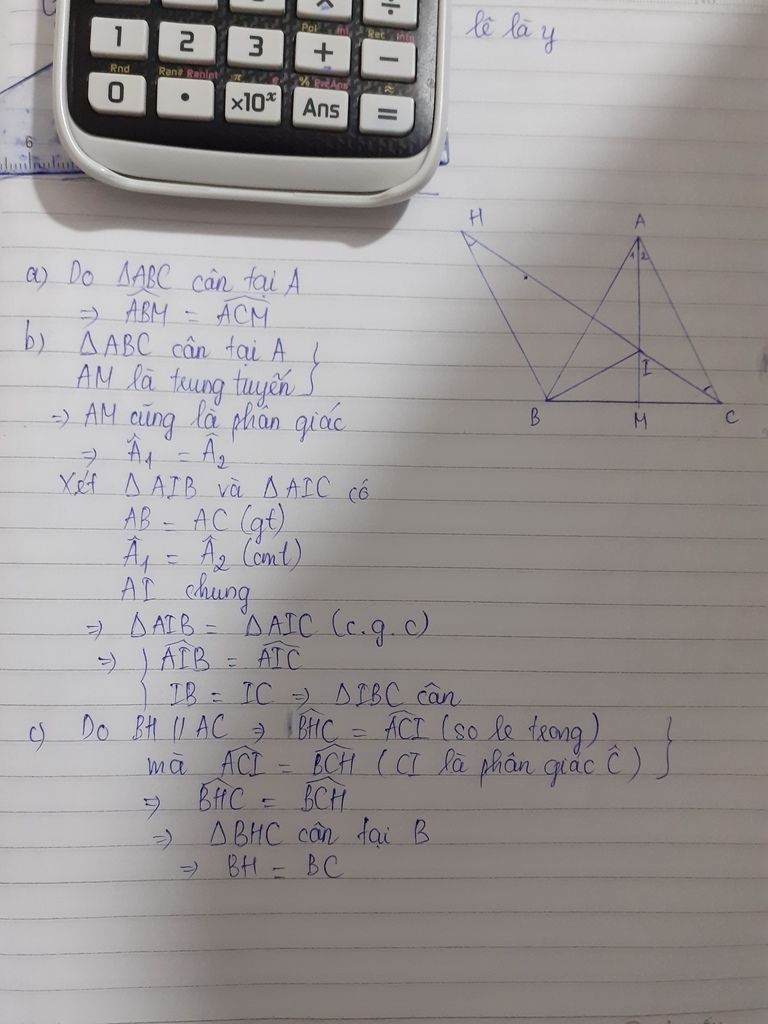 ÷
1 2 3 + −
Rnd Ran# RanInt π e % PreAns ≈
0 • ×10ˣ Ans =
lê là y
6
H A
1 2
I
B M C
a) Do ΔABC cân tại A
⇒ \widehat{ABM} = \widehat{ACM}
b) ΔABC cân tại A }
AM là trung tuyến }
⇒ AM cũng là phân giác
⇒ Â₁ = Â₂
Xét ΔAIB và ΔAIC có
AB = AC (gt)
Â₁ = Â₂ (cmt)
AI chung
⇒ ΔAIB = ΔAIC (c.g.c)
⇒ { \widehat{AIB} = \widehat{AIC}
{ IB = IC ⇒ ΔIBC cân
c) Do BH // AC ⇒ \widehat{BHC} = \widehat{ACI} (so le trong) }
mà \widehat{ACI} = \widehat{BCH} (CI là phân giác Ĉ) }
⇒ \widehat{BHC} = \widehat{BCH}
⇒ ΔBHC cân tại B
⇒ BH = BC